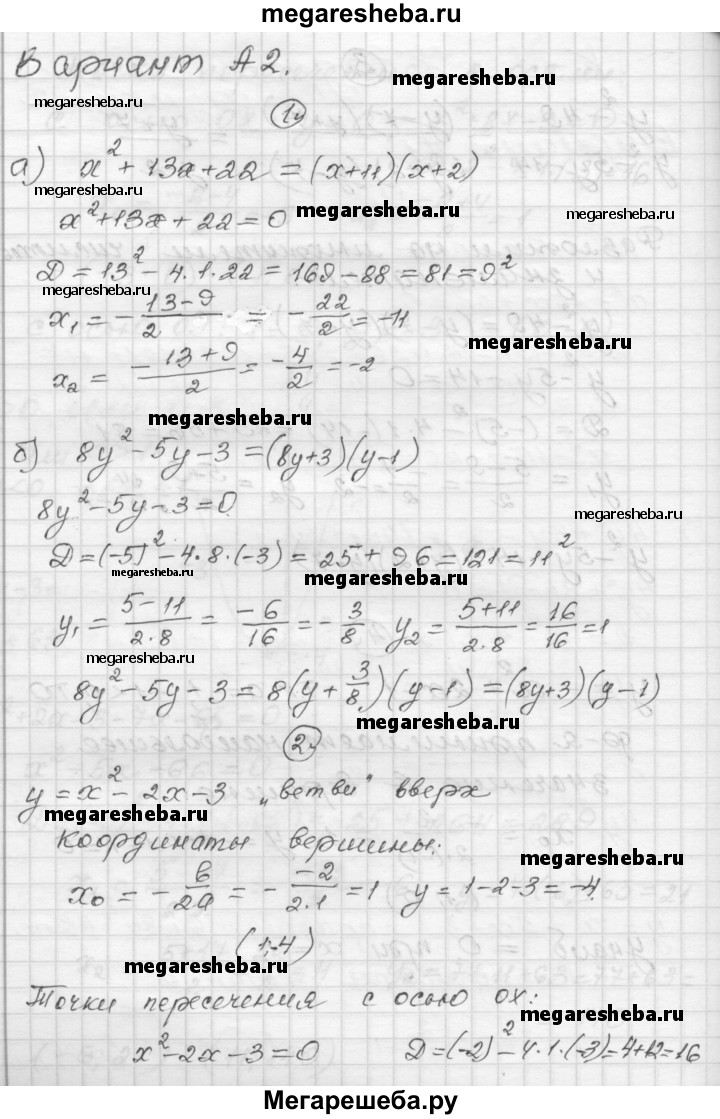 megaresheba.ru
Вариант А2.
megaresheba.ru
megaresheba.ru
1.
а) x² + 13x + 22 = (x+11)(x+2)
megaresheba.ru
x² + 13x + 22 = 0
megaresheba.ru
megaresheba.ru
D = 13² - 4·1·22 = 169 - 88 = 81 = 9²
megaresheba.ru
x₁ = -13-9/2 = -22/2 = -11
megaresheba.ru
x₂ = -13+9/2 = -4/2 = -2
megaresheba.ru
б) 8y² - 5y - 3 = (8y+3)(y-1)
8y² - 5y - 3 = 0
megaresheba.ru
D = (-5)² - 4·8·(-3) = 25 + 96 = 121 = 11²
megaresheba.ru
megaresheba.ru
y₁ = 5-11/2·8 = -6/16 = -3/8 y₂ = 5+11/2·8 = 16/16 = 1
megaresheba.ru
8y² - 5y - 3 = 8(y + 3/8)(y-1) = (8y+3)(y-1)
megaresheba.ru
2.
y = x² - 2x - 3 „ветви" вверх
megaresheba.ru
Координаты вершины:
megaresheba.ru
x₀ = -в/2a = - -2/2·1 = 1 y = 1-2-3 = -4
(1;-4)
megaresheba.ru
Точки пересечения с осью ox:
megaresheba.ru
x² - 2x - 3 = 0 D = (-2)² - 4·1·(-3) = 4+12 = 16
Мегарешеба.ру